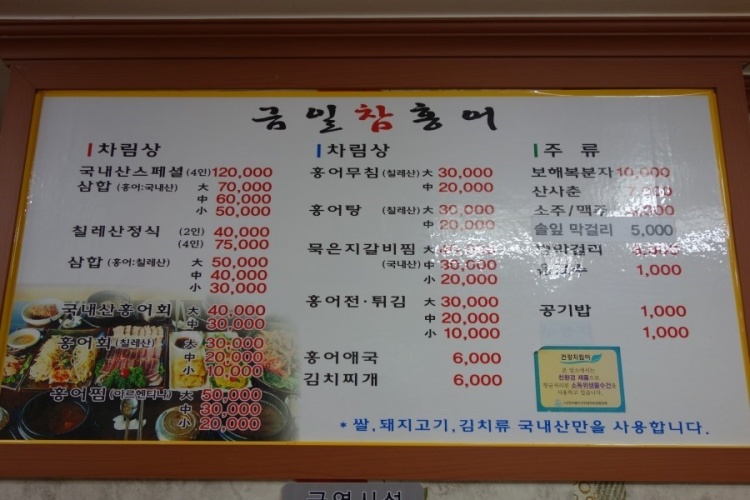 금일참홍어
차림상
국내산스페셜 (4인) 120,000
삼합 (홍어:국내산) 大 70,000
中 60,000
小 50,000
칠레산정식 (2인) 40,000
(4인) 75,000
삼합 (홍어:칠레산) 大 50,000
中 40,000
小 30,000
국내산홍어회 大 40,000
中 30,000
홍어회 (칠레산) 大 30,000
中 20,000
小 10,000
홍어찜 (아르헨티나) 大 50,000
中 30,000
小 20,000
차림상
홍어무침 (칠레산) 大 30,000
中 20,000
홍어탕 (칠레산) 大 30,000
中 20,000
묵은지갈비찜 大
(국내산) 中 30,000
小 20,000
홍어전·튀김 大 30,000
中 20,000
小 10,000
홍어애국 6,000
김치찌개 6,000
주 류
보해복분자 10,000
산사춘
소주/맥주
솔잎 막걸리 5,000
1,000
공기밥 1,000
1,000
건강지킴이
본 업소에서는
친환경 제품으로
*쌀,돼지고기,김치류 국내산만을 사용합니다.